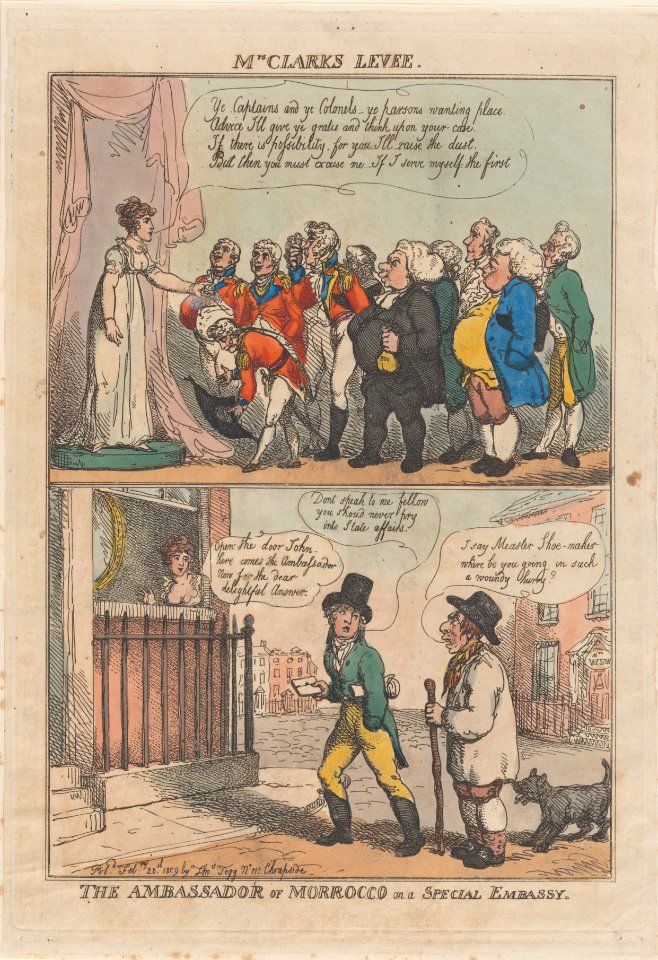 Mrs CLARKS LEVEE.
Ye Captains and ye Colonels - ye parsons wanting place
Advice I'll give ye gratis and think upon your case
If there is possibility for you I'll raise the dust
But then you must excuse me If I serve myself the first
Dont speak to me fellow
you shoud never pry
into State affairs.
Open the door John -
here comes the Ambassador
Now for the dear
delightful Answer.
I say Measter Shoe-maker
where be you going in such
a woundy Hurry?
Pubd Feby 20th 1809 by Thos Tegg No 111 Cheapside
THE AMBASSADOR OF MORROCCO on a SPECIAL EMBASSY.